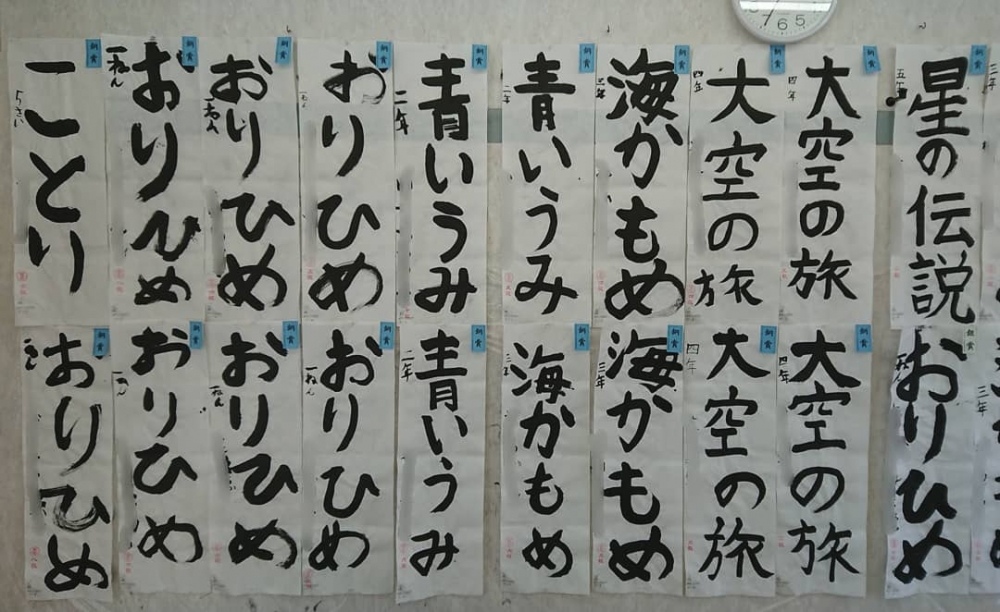 銅賞
ことり
5さい
銅賞
おりひめ
一ねん
銅賞
おりひめ
一ねん
銅賞
おりひめ
銅賞
青いうみ
二年
銅賞
青いうみ
二年
銅賞
海かもめ
三年
銅賞
大空の旅
四年
銅賞
大空の旅
四年
銅賞
星の伝説
五年
銅賞
おりひめ
銅賞
おりひめ
銅賞
おりひめ
一ねん
銅賞
おりひめ
一ねん
銅賞
青いうみ
二年
銅賞
海かもめ
三年
銅賞
海かもめ
三年
銅賞
大空の旅
四年
銅賞
大空の旅
四年
銅賞
おりひめ
三年
7 6 5